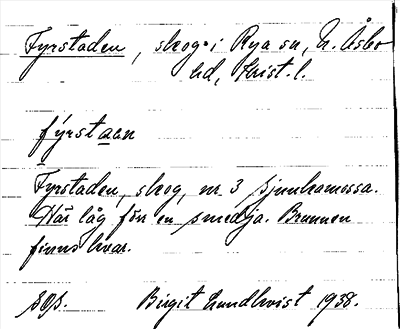 Fyrstaden, skog i Rya sn, N. Åsbo
hd, Krist. l.
fýrstaen
Fyrstaden, skog, nr 3 Sjunkamossa.
Här låg förr en smedja. Brunnen
finns kvar.
Birgit Lundkvist 1938.